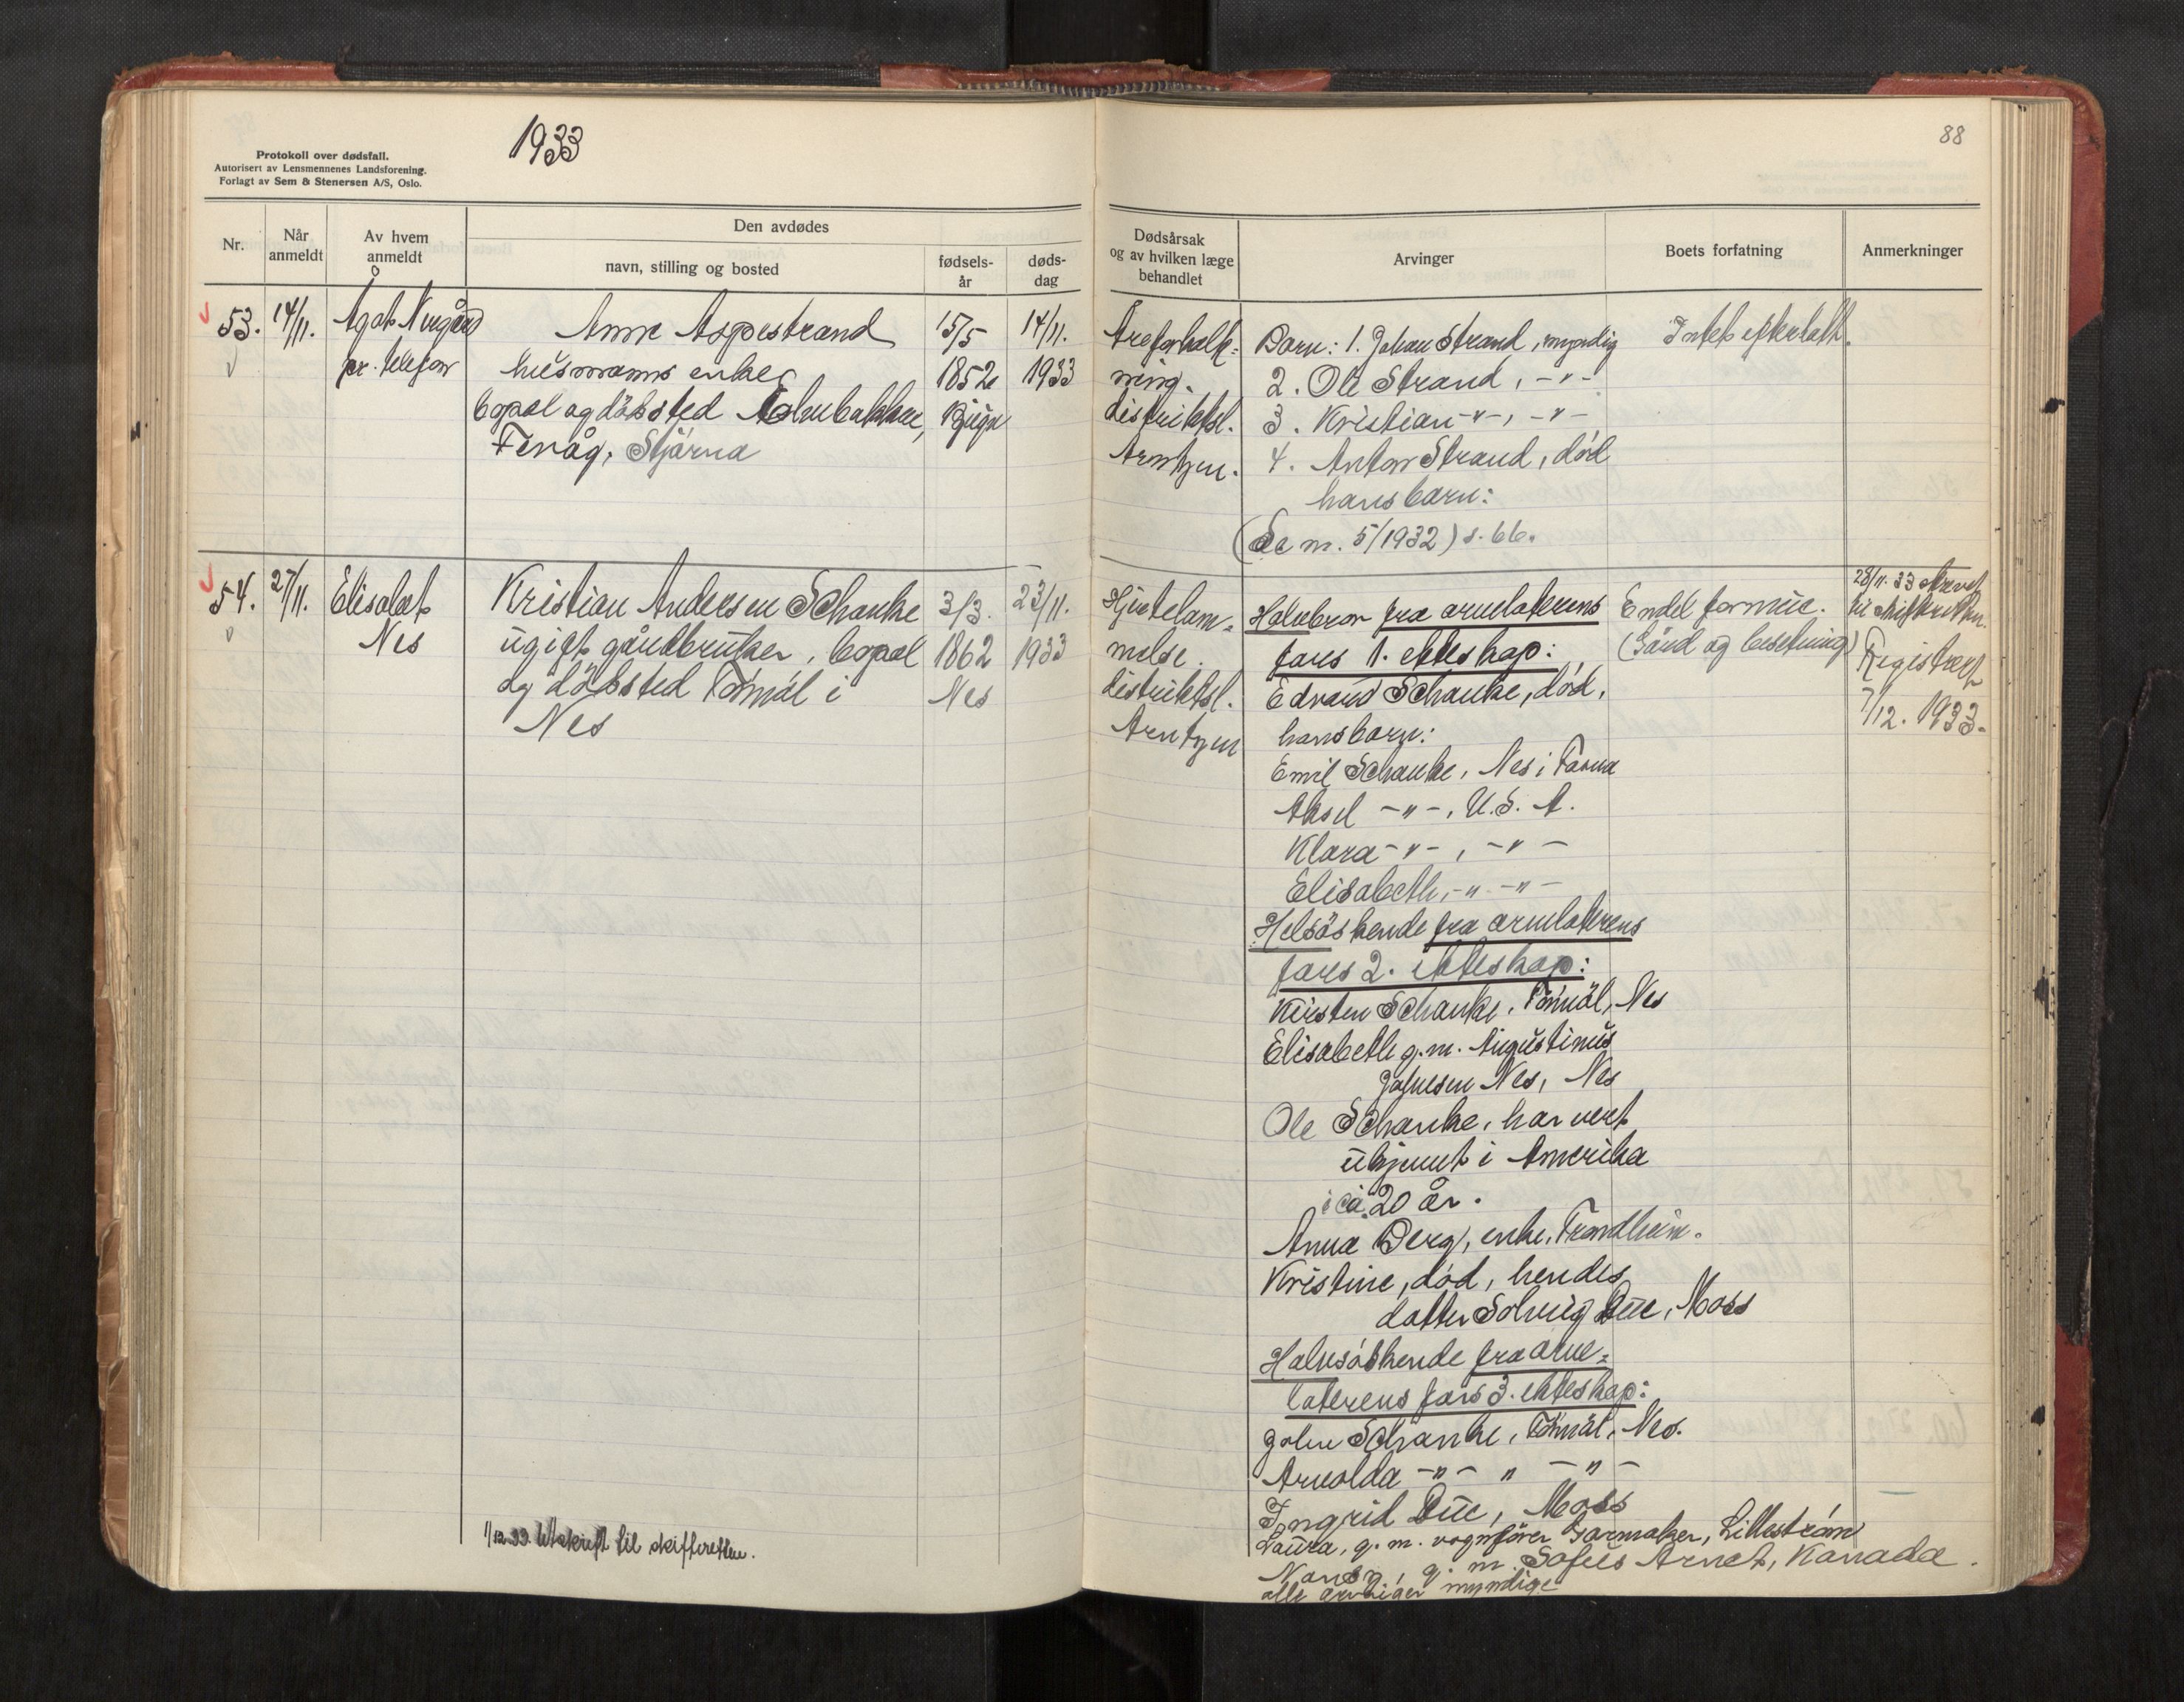 1933
88
Protokoll over dødsfall.
Autorisert av Lensmennenes Landsforening.
Forlagt av Sem & Stenersen A/S, Oslo.
Nr.
Når
anmeldt
Av hvem
anmeldt
Den avdødes
navn, stilling og bosted
fødsels-
år
døds-
dag
Dødsårsak
og av hvilken læge
behandlet
Arvinger
Boets forfatning
Anmerkninger
53.
14/11.
Ågot Nergård
pr. telefon
Anne Aspestrand
husmanns enke
bopæl og dödssted
Fevåg, Stjørna
15/5
1852
Bjugn
14/11.
1933
Åreforkalk=
ning.
distriktsl.
Arntzen.
Barn: 1. Johan Strand, myndig
2. Ole Strand, -"-
3. Kristian -"-, -"-
4. Anton Strand, död
hans barn:
(Se nr. 5/1932) s. 66.
Intet efterlatt.
54.
27/11.
Elisabet
Nes
Kristian Andersen Schanke
ugift gårdbruker, bopæl
og dödssted Tömäl i
Nes
3/3.
1862
Nes
23/11.
1933
Hjertelam=
melse.
distriktsl.
Arntzen
Halvbror fra arvelaterens
fars 1. ekteskap:
Edvard Schanke, död,
hans barn:
Emil Schanke, Nes i
Aksel -"-, U.S.A.
Klara -"-, -"-
Elisabeth, -"- -"-
Helsöskende fra arvelaterens
fars 2. ekteskap:
Kirsten Schanke, Tömäl, Nes
Elisabeth g.m. Augustinus
Johnsen Nes, Nes
Ole Schanke, har vert
ukjent i Amerika
i ca. 20 år.
Anna Berg, enke, Trondheim.
Kristine, död, hendes
datter Solveig Due, Moss
Halvsöskende fra arve=
laterens fars 3. ekteskap:
John Schanke, Tömäl, Nes.
Arnolda -"- " -"-
Ingrid Due, Moss
Laura, g.m. vognfører Garmaker, Lilleström
Nancy, g. m. Sofus Arnet, Kanada.
alle arvinger myndige
Endel formue.
(Gård og besetning)
28/11. 33 skrevet
til skifteretten.
Registrert
7/12. 1933.
1/12.33. Utskrift til skifteretten.